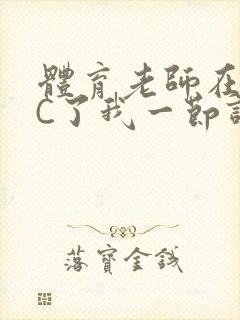 體育老師在
C了我一節
落寶金錢